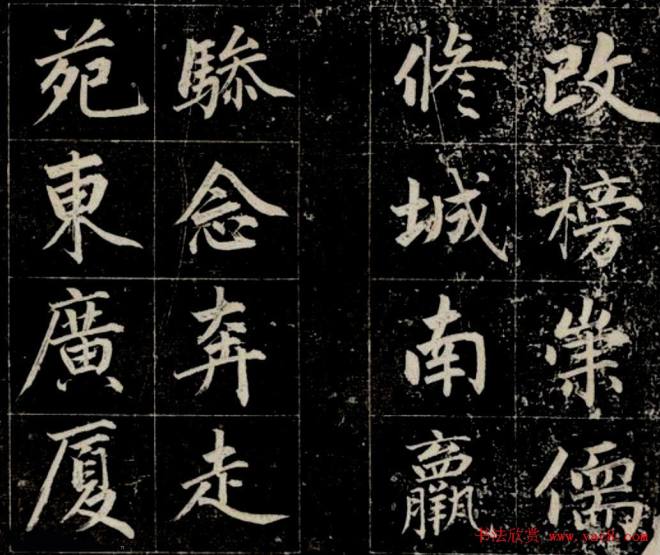 改榜崇儒
修城南羸
驂念奔走
苑東廣厦
书法欣赏 www.yac8.com